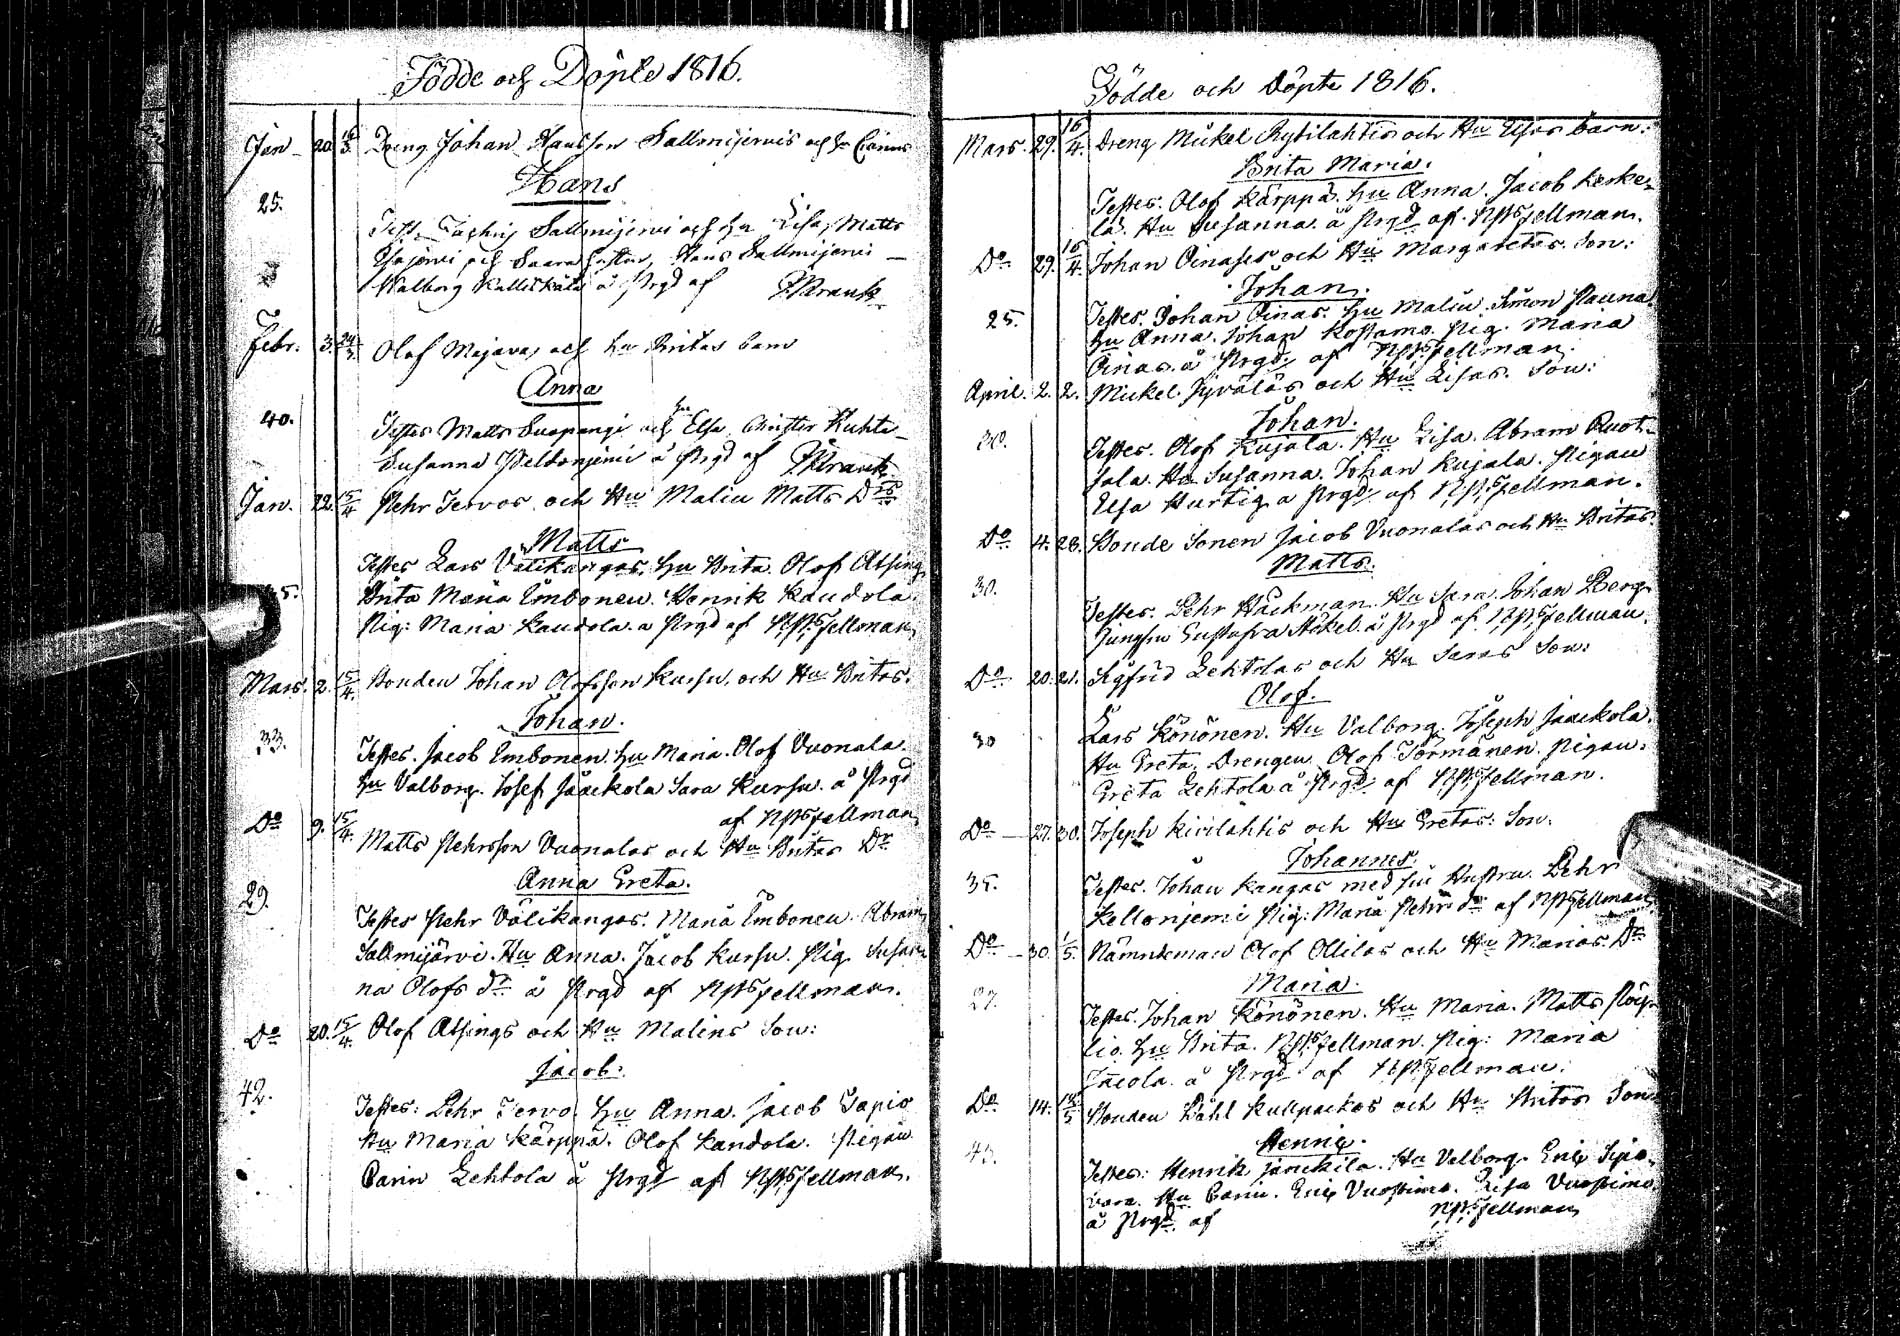 Födde och Döpte 1816.
Jan. 20. 16/3. Dreng Johan Hansson Sallmijervis och
Hans
25.
Test. Sallmijervi och hu Lisa, Matts
och Saara hustru, Hans Sallmijervi
Walborg å Prgd af
Febr. 3. 24/3. Olof Majavas och hu Britas barn
Anna
40.
Testes Matts Suopangi och hu Elsa
Susanna å Prgd af
Jan. 22. 15/4 Pehr Tervos och Hu Malin Matts Dr
Matts
Testes Lars Välikangas. hu Brita. Olof Alsing
Brita Maria Imbonen. Henrik Kandola.
Pig: Maria Kandola. a Prgd af Fellman
Mars. 2. 15/4. Bonden Johan Olofsson Kursu och Hu Britas.
Johan.
33.
Testes. Jacob Embonen. hu Maria. Olof Vuonala.
hu Valborg. Josef Jäækola Sara Kursu. å Prgd
af Fellman
Do 9. 15/4. Matts Pehrsson Vuonalas och Hu Britas Dr
Anna Greta.
29.
Testes Pehr Välikangas. Maria Imbonen. Abram
Sallmijärvi. Hu Anna. Jacob Kursu. Pig. Susan
na Olofs dr å Prgd af Fellman.
Do 20. 15/4. Olof Alsings och Hu Malins Son:
Jacob:
42.
Testes: Pehr Tervo. hu Anna. Jacob Tapio
Hu Maria Kärppä. Olof Kandola. Pigan
Carin Lehtola å Prgd af Fellman.
Födde och Döpte 1816.
Mars. 29. 16/4. Dreng Mickel Kytilahtis och Hu Elsas barn:
Brita Maria.
Testes. Olof Kärppä. hu Anna. Jacob Keske-
lä. Hu Susanna. å Prgd af Fellman.
Do 29. 16/4. Johan Oinases och Hu Margaretas. Son:
Johan.
25.
Testes. Johan Oinas. hu Malin. Simon
hu Anna. Johan Kostamo. Pig. Maria
Oinas. å Prgd af Fellman.
April. 2. 2. Mickel Jyväläs och Hu Lisas. Son:
Johan.
30.
Testes. Olof Kujala. Hu Lisa. Abram Ruot-
sala. Hu Susanna. Johan Kujala. Pigan
Elsa Hurtig a Prgd af Fellman.
Do 4. 28. Bonde Sonen Jacob Vuonalas och Hu Britas.
Matts.
30.
Testes. Pehr Häckman. Hu Sara. Johan Berg.
Jungfru Gustafva å Prgd af Fellman.
Do 20. 21. Sigfrid Lehtolas och Hu Saras Son:
Olof.
30
Lars Könönen. Hu Valborg. Joseph Jäækola.
Hu Greta. Drengen Olof Törmänen. Pigan.
Greta Lehtola å Prgd af Fellman.
Do 27. 30. Joseph Kivilahtis och Hu Gretas: Son:
Johannes.
35.
Testes. Johan Kangas med sin Hustru. Pehr
Kellonjemi Pig: Maria Pehrs dr af Fellman
Do 30. 1/5. Nämndeman Olof Ollilas och Hu Marias Dr
Maria.
27.
Testes. Johan Könönen. Hu Maria. Matts
lio. hu Brita. Fellman. Pig: Maria
å Prgd af Fellman.
Do 14. 18/5 Bonden Påhl Kullpackas och Hu Britas Son
Henric.
43.
Testes: Henrik Jänckilä. Hu Valborg. Eric
vara. Hu Carin. Eric Vuostimo. Lisa Vuostimo.
å Prgd af Fellman